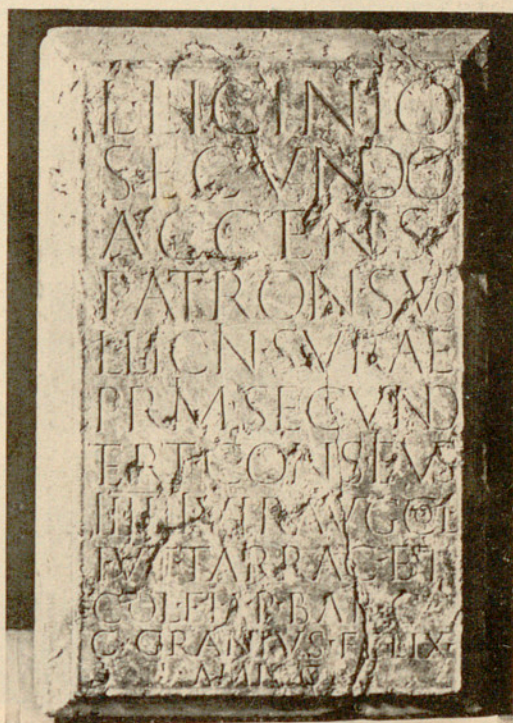 L·LICINIO
SECVNDO
ACCENS
PATRON·SVO
L·LICIN·SVRAE
PRIM·SECVND
TERT·CONSVL·EIVS
IIIIII·VIR·AVG·COL
I·V·T·TARRAC·ET
COL·F·I·A·P·BARC
C·GRANIVS·FELIX
AMICO